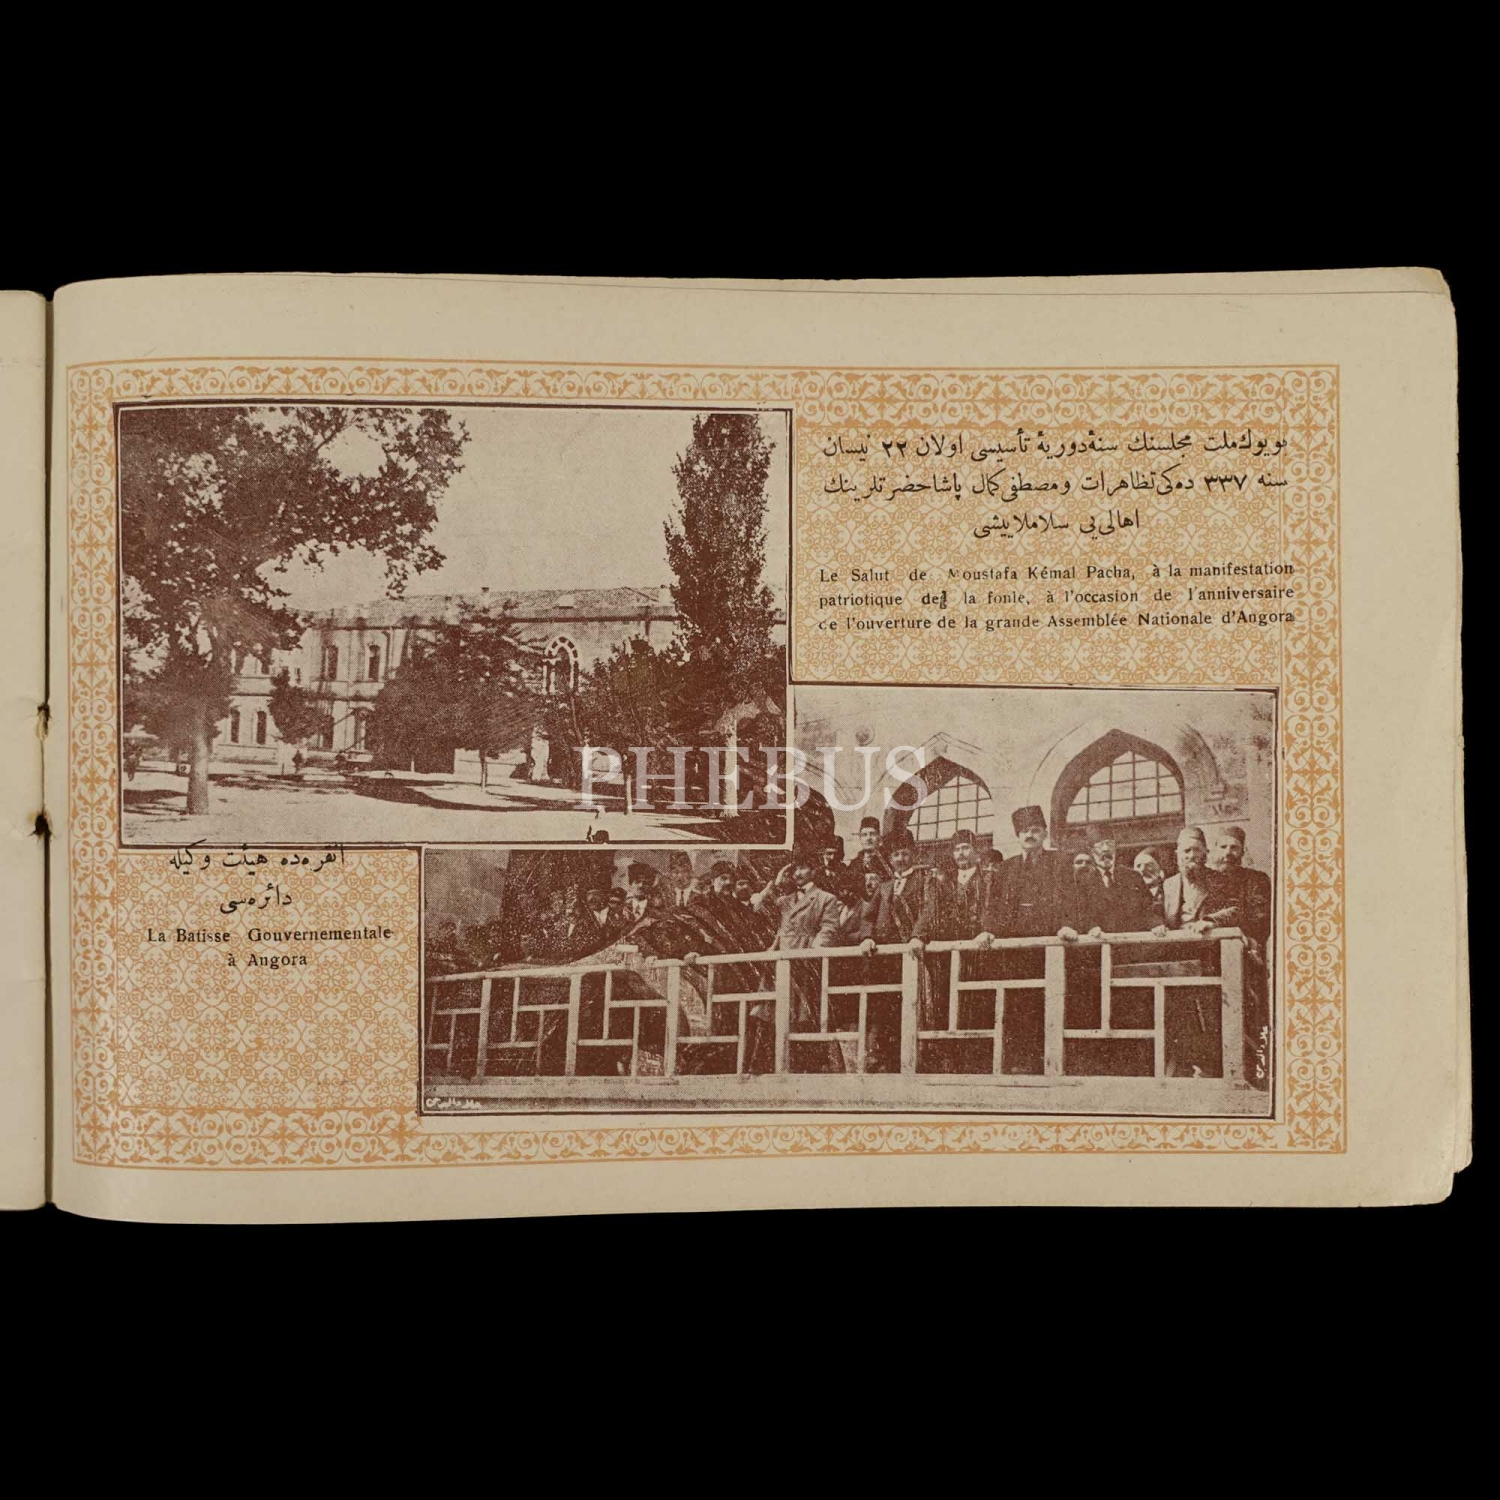 بویوك ملت مجلسنك سنهٔ دوریهٔ تأسیسی اولان ٢٢ نیسان
سنه ٣٣٧ ده كی تظاهرات و مصطفی كمال پاشا حضرتلرینك
اهالی یی سلاملاییشی
Le Salut de Moustafa Kémal Pacha, à la manifestation
patriotique de la fonle, à l'occasion de l'anniversaire
de l'ouverture de la grande Assemblée Nationale d'Angora
PHEBUS
انقره ده هیئت وكیله
دائره سی
La Batisse Gouvernementale
à Angora